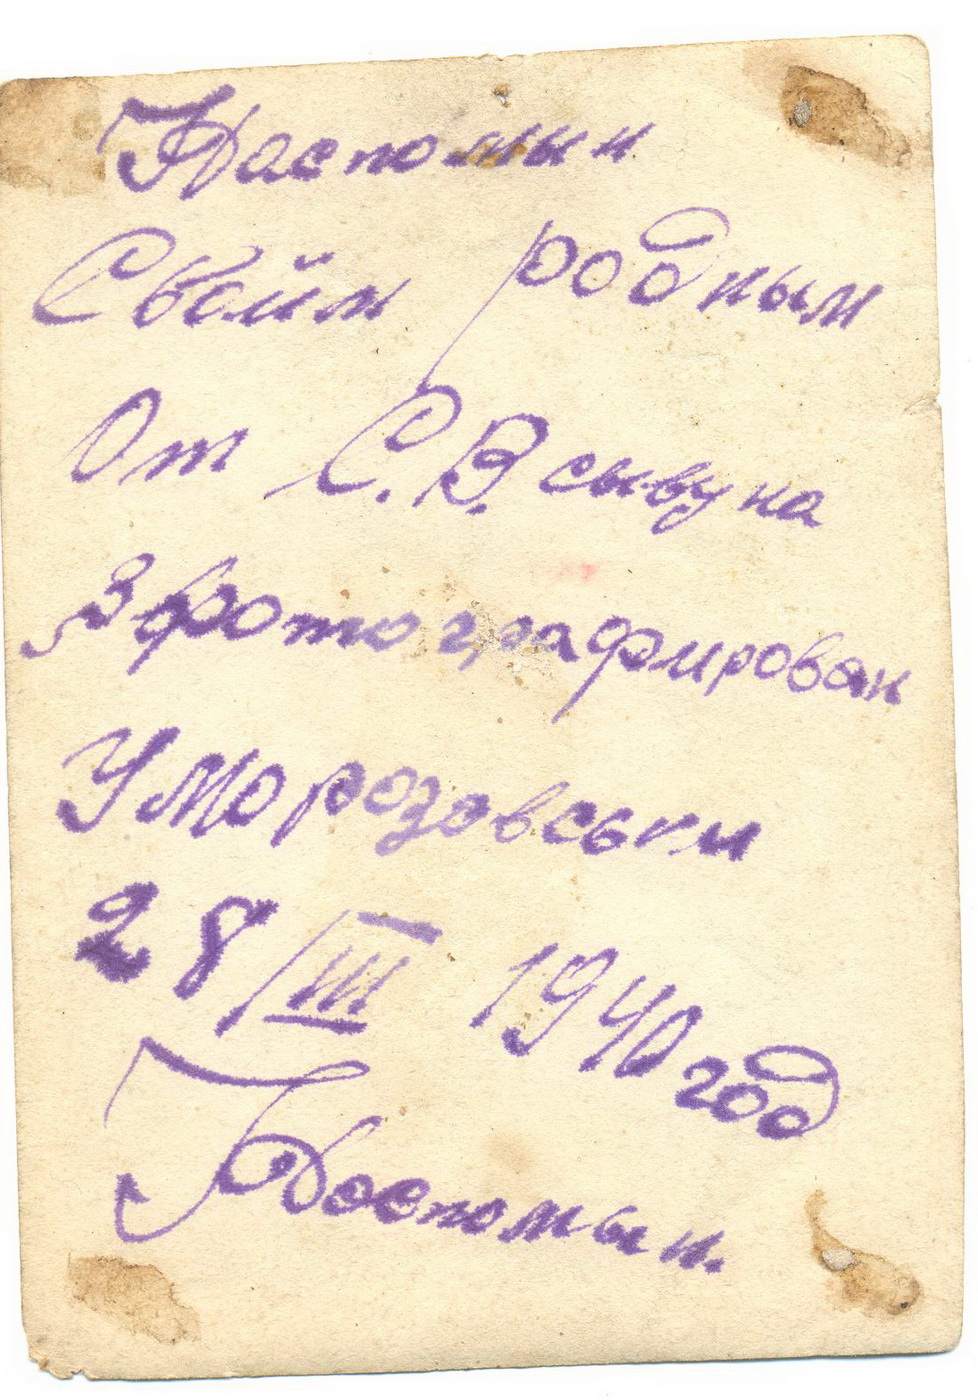 Наспомын
Свойм родным
От С. В. сывуна
Зфотографирован
У морозовськи
28/III 1940 год
Воспомын.